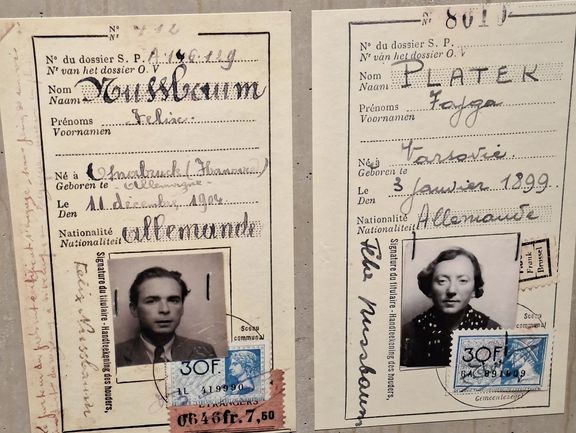 No 412
No du dossier S. P. A.146.119
No van het dossier O. V
Nom
Naam Nussbaum
Prénoms
Voornamen Felix
Né à
Geboren te Osnabruck (Hannovre)
Allemagne
Le
Den 11 décembre 1904
Nationalité
Nationaliteit allemande
Signature du titulaire - Handteekening des houders,
Felix Nussbaum
Sceau
communal
30F.
1L 419990
ETRANGERS
0646fr.7,50
No 8610
No du dossier S. P.
No van het dossier O. V
Nom
Naam PLATEK
Prénoms
Voornamen Fajga
Né à
Geboren te Varsovie
Le
Den 3 janvier 1899
Nationalité
Nationaliteit Allemande
Signature du titulaire - Handteekening des houders,
Felka Nussbaum
Frank
Brussel
Sceau
communal
30F.
891609
Gemeentezegel